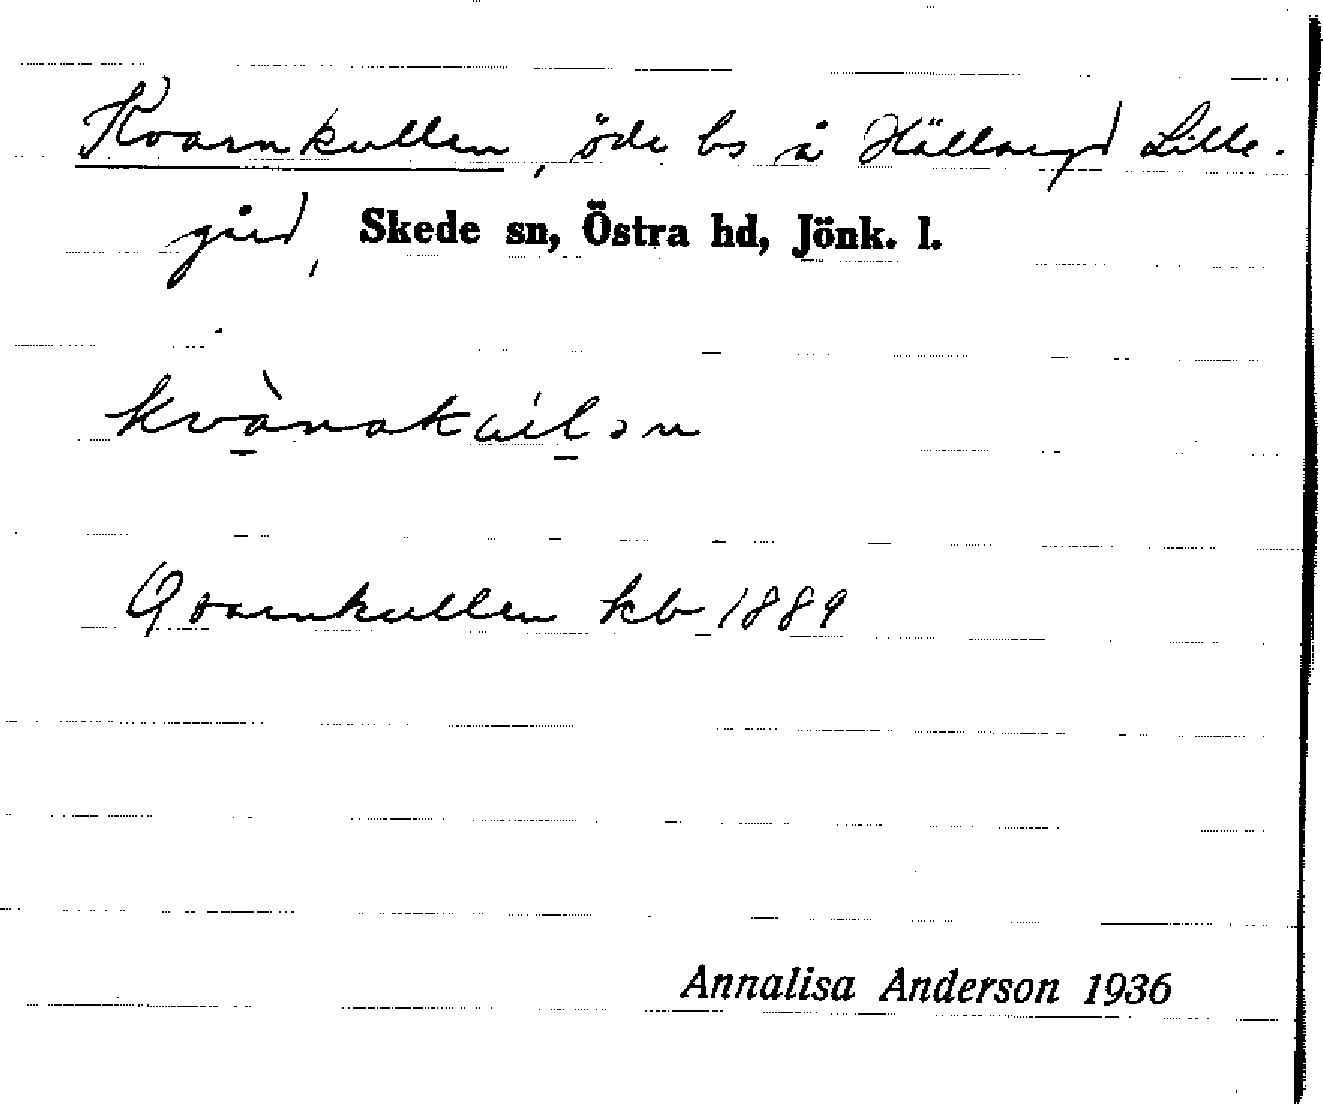 Kvarnkullen, öde bs å Hällaryd Lille-
gård, Skede sn, Östra hd, Jönk. l.
Qvarnkullen kb 1889
Annalisa Anderson 1936